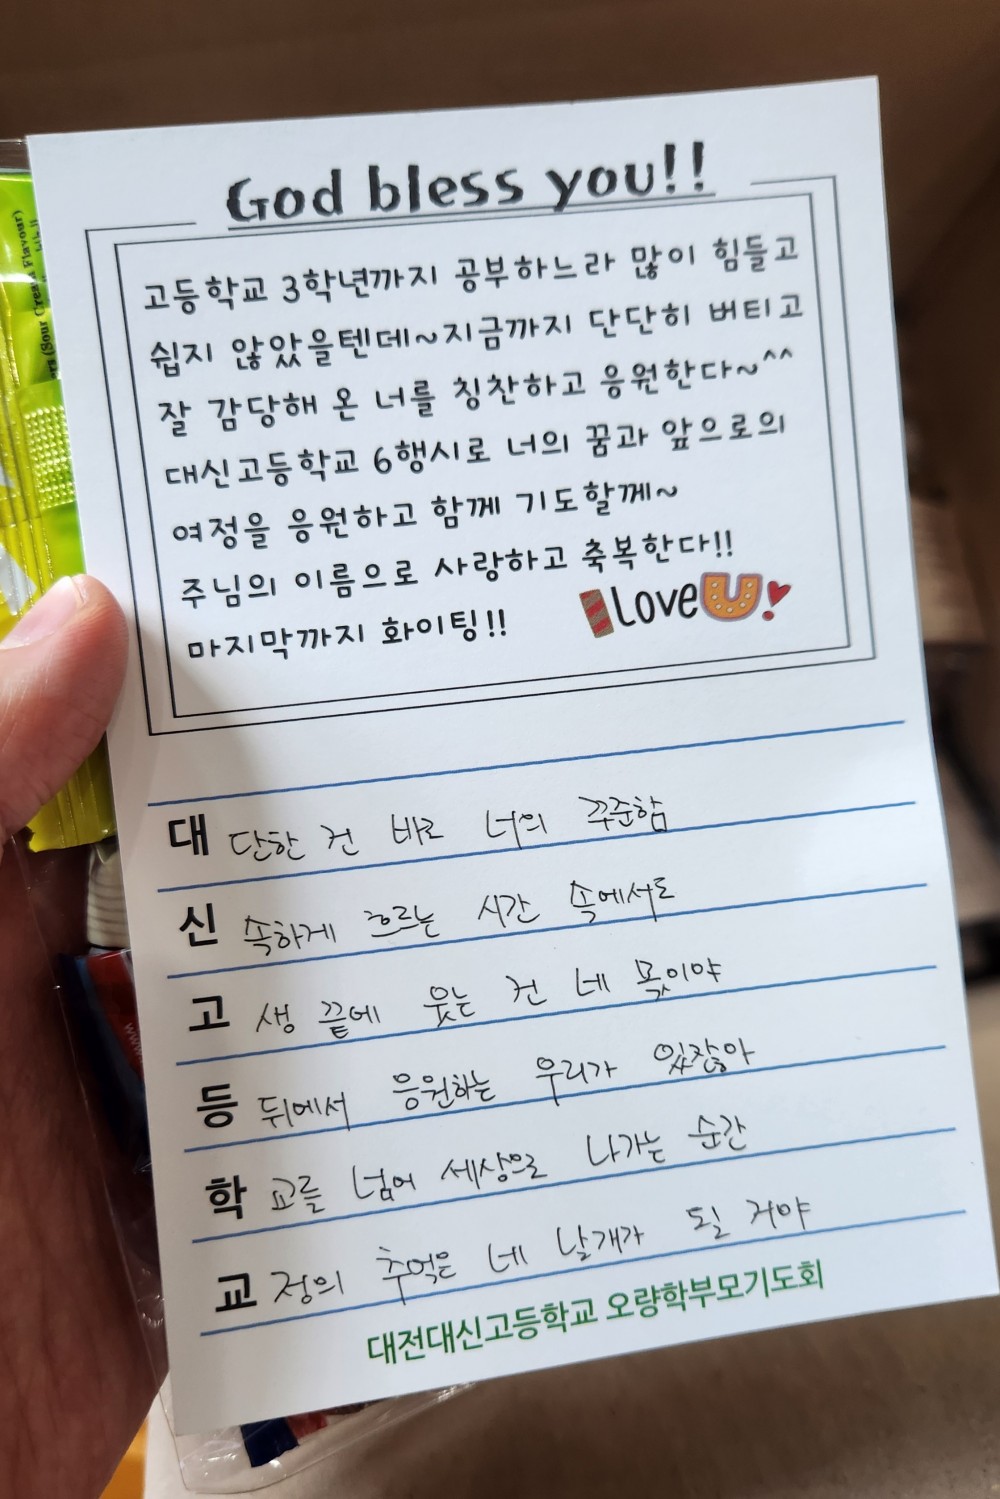 God bless you!!
고등학교 3학년까지 공부하느라 많이 힘들고
쉽지 않았을텐데~지금까지 단단히 버티고
잘 감당해 온 너를 칭찬하고 응원한다~^^
대신고등학교 6행시로 너의 꿈과 앞으로의
여정을 응원하고 함께 기도할께~
주님의 이름으로 사랑하고 축복한다!!
마지막까지 화이팅!!
I Love U!
대 단한 건 바로 너의 꾸준함
신 속하게 흐르는 시간 속에서도
고 생 끝에 웃는 건 네 몫이야
등 뒤에서 응원하는 우리가 있잖아
학 교를 넘어 세상으로 나가는 순간
교 정의 추억은 네 날개가 될 거야
대전대신고등학교 오량학부모기도회
(Sour Cream Flavour)